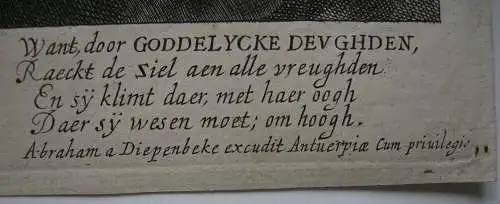 Want, door GODDELYCKE DEVGHDEN,
Raeckt de ziel aen alle vreughden
En sÿ klimt daer, met haer oogh
Daer sÿ wesen moet; om hoogh.
Abraham a Diepenbeke excudit Antuerpiæ Cum priuilegio